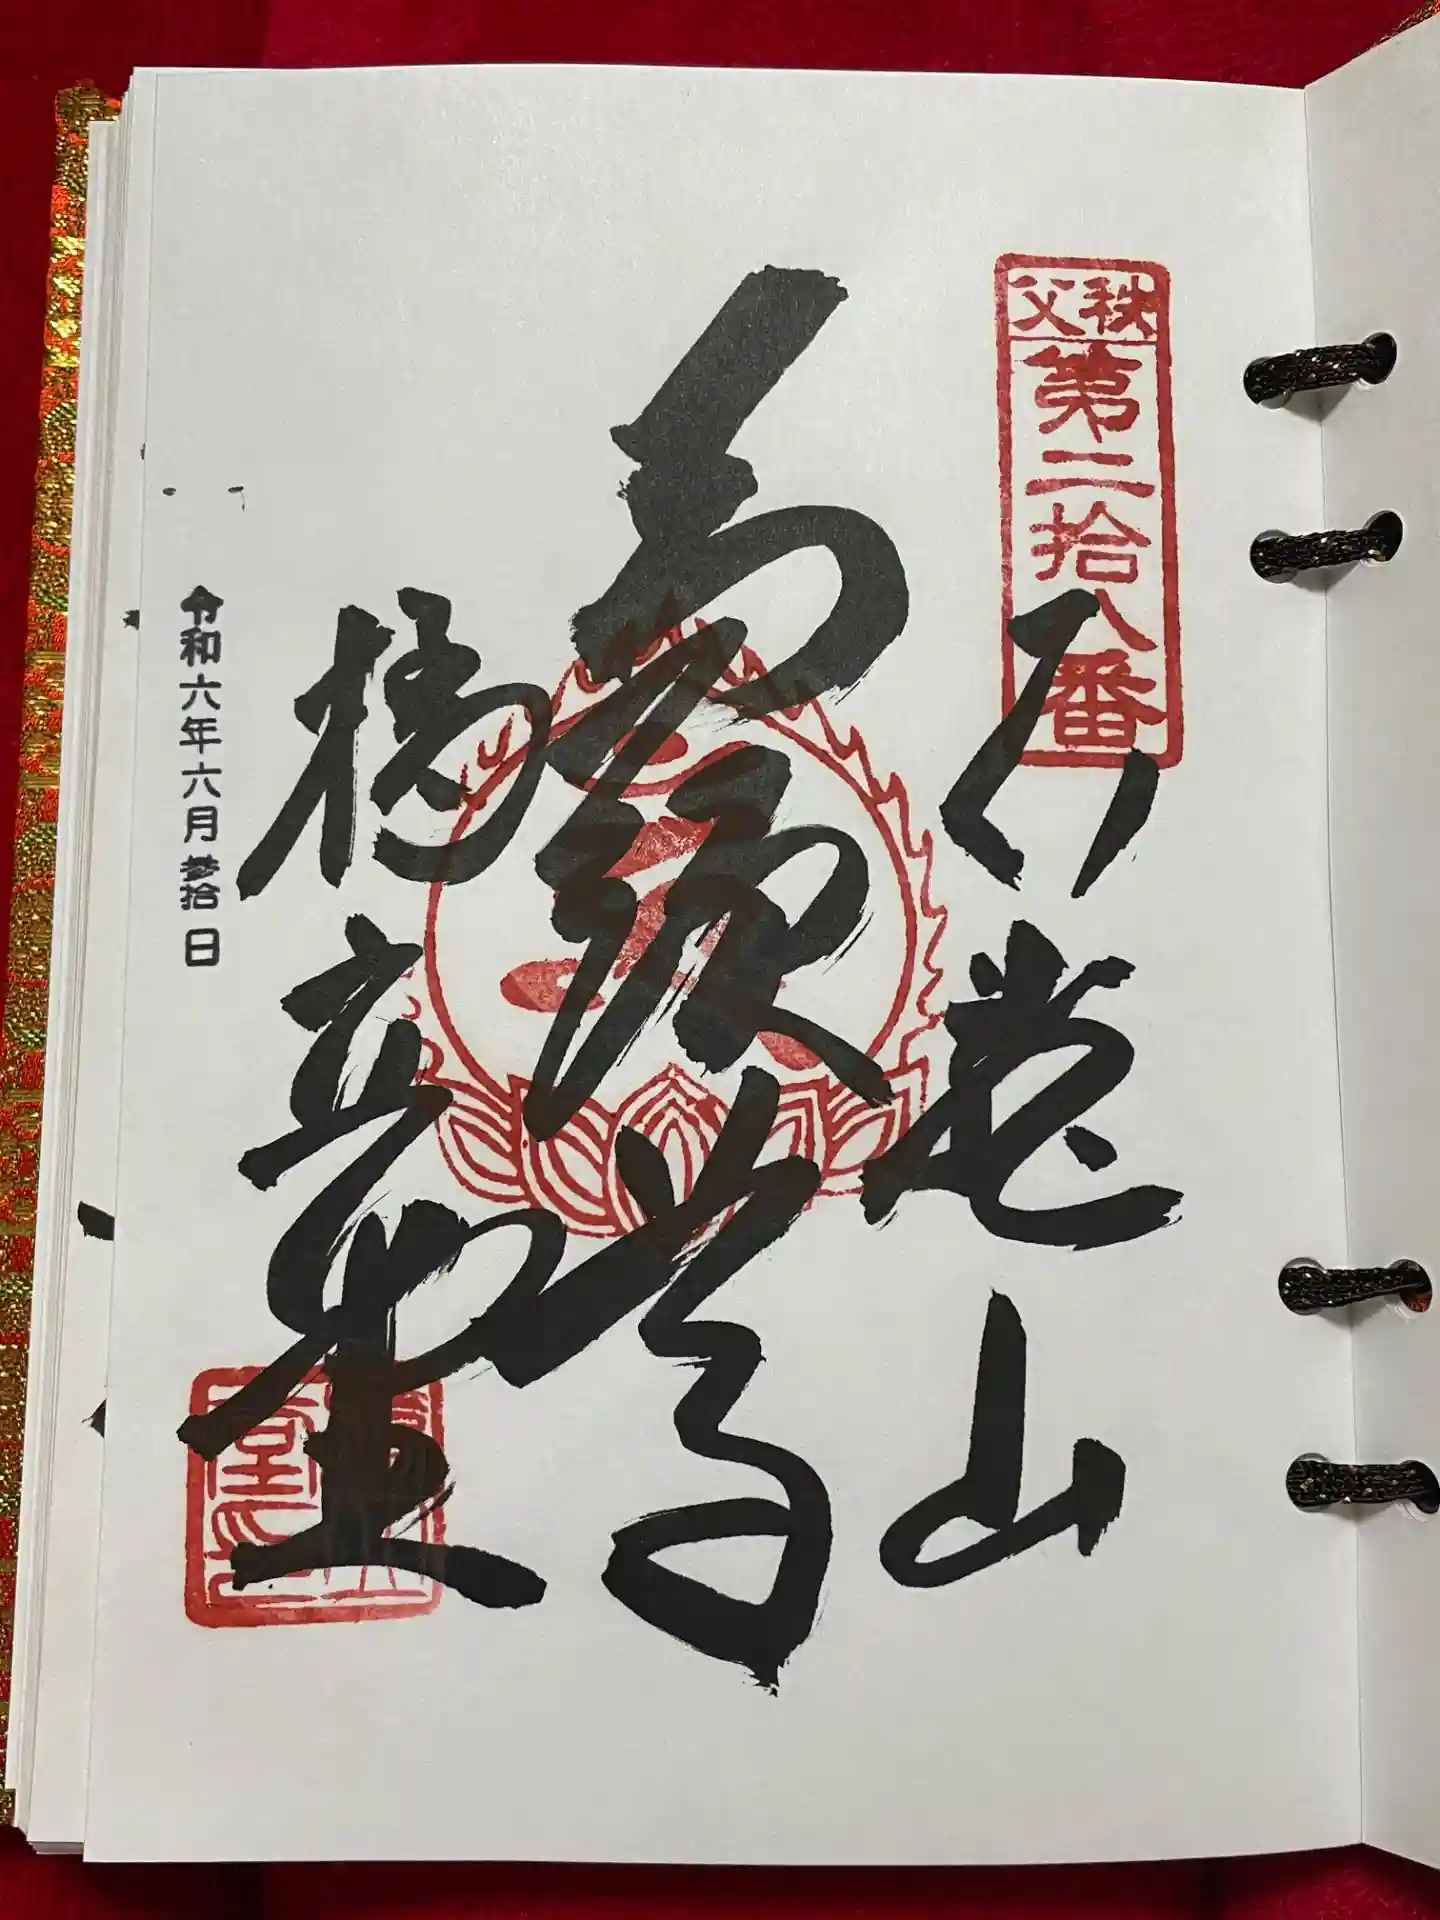 秩父
第二拾八番
石龍山
馬頭尊
橋立堂
令和六年六月参拾日